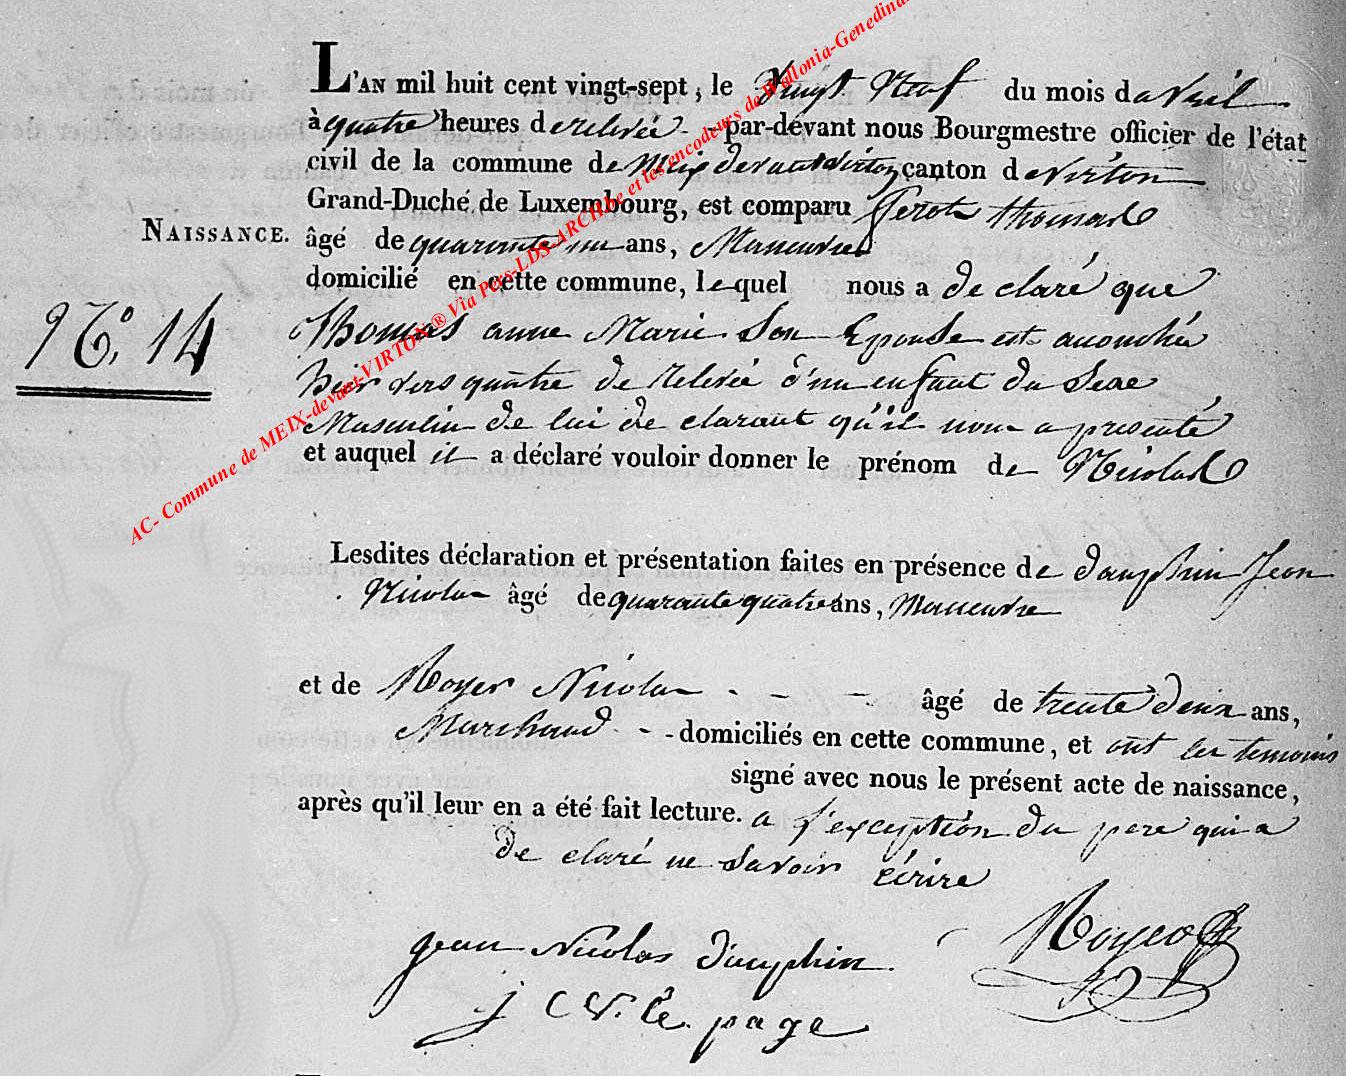 L'AN mil huit cent vingt-sept, le Vingt Neuf du mois d'avril
à quatre heures de relevée - par-devant nous Bourgmestre officier de l'état
civil de la commune de Meix devant virton canton de Virton
Grand-Duché de Luxembourg, est comparu thomas
NAISSANCE.
âgé de quarante un ans, Manœuvre
domicilié en cette commune, lequel nous a déclaré que
N.° 14
Thomas anne Marie Son Epouse est accouchée
hier vers quatre de relevée d'un enfant du Sexe
Masculin de lui déclarant qu'il nous a présenté
et auquel il a déclaré vouloir donner le prénom de Nicolas
Lesdites déclaration et présentation faites en présence de dauphin Jean
Nicolas âgé de quarante quatre ans, Manœuvre
et de Royer Nicolas - - - âgé de trente deux ans,
Marchand - - domiciliés en cette commune, et ont les temoins
signé avec nous le présent acte de naissance,
après qu'il leur en a été fait lecture. a l'exception du pere qui a
declaré ne Savoir écrire
jean Nicolas Dauphin
j C N. Le page
AC- Commune de MEIX-devant-VIRTON® Via Pers-LDS-ARCHbe et les encodeurs de Wallonia-Genedinar